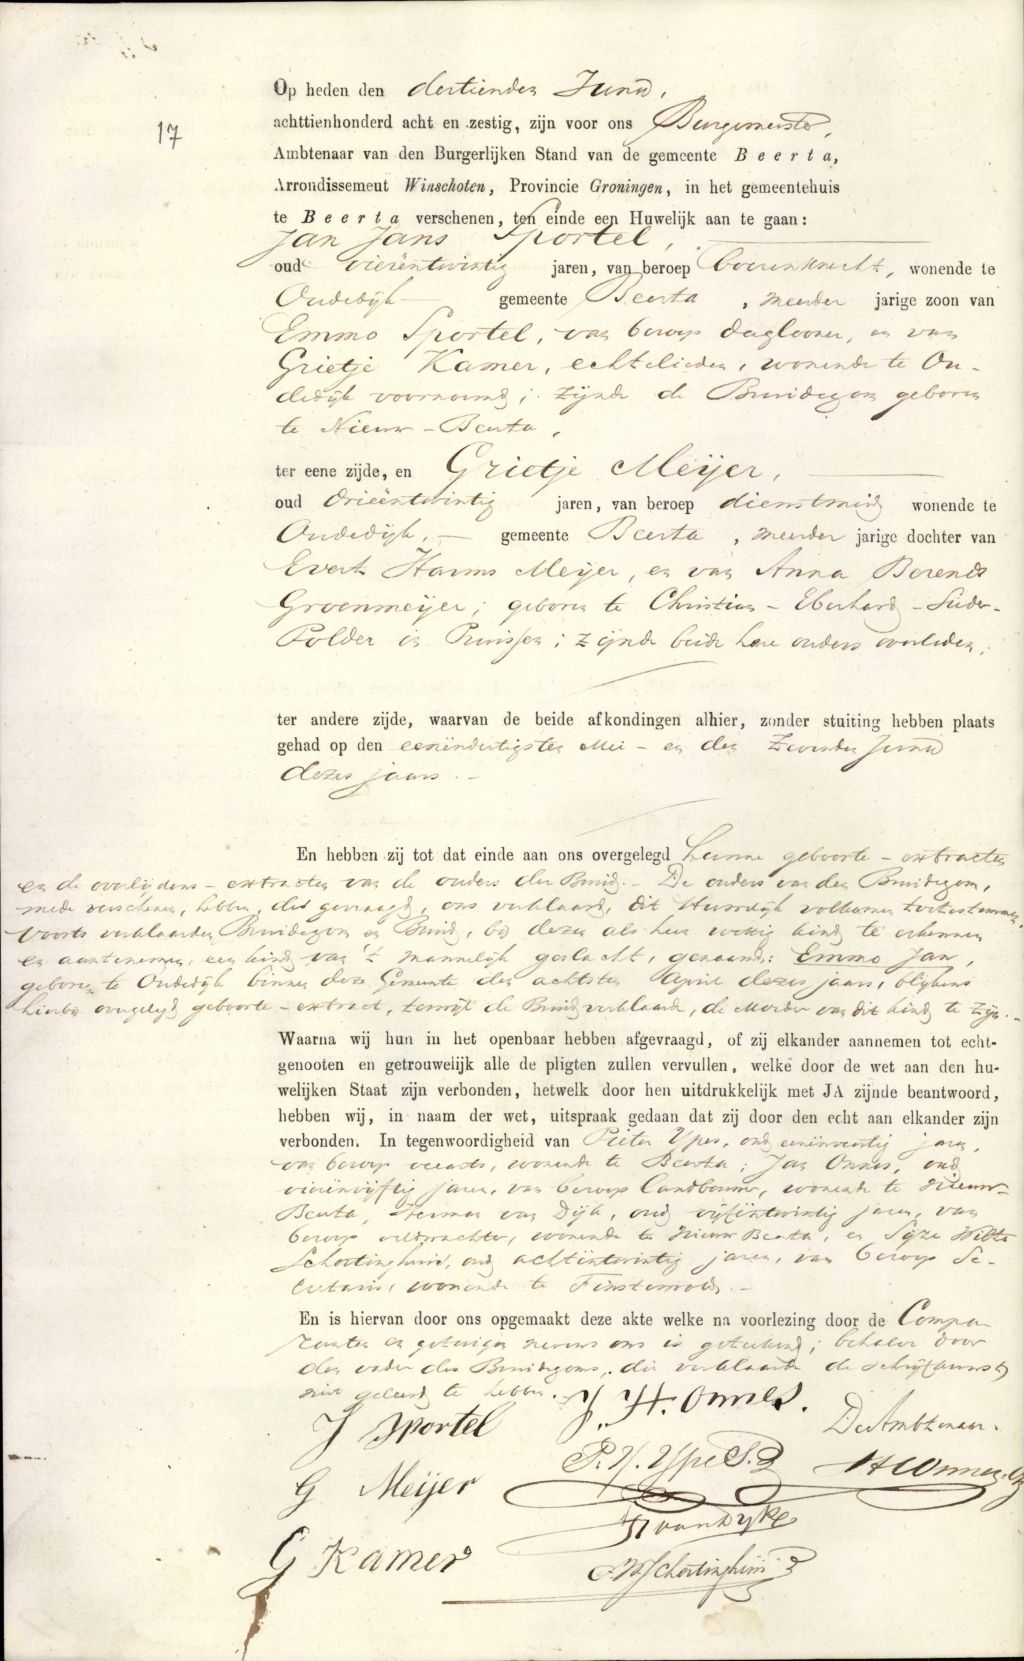 17
Op heden den dertienden Junij,
achttienhonderd acht en zestig, zijn voor ons Burgemeester,
Ambtenaar van den Burgerlijken Stand van de gemeente Beerta,
Arrondissement Winschoten, Provincie Groningen, in het gemeentehuis
te Beerta verschenen, ten einde een Huwelijk aan te gaan:
Jan Jans Sportel,
oud vierentwintig jaren, van beroep boerenknecht, wonende te
Oudedijk gemeente Beerta, meerder jarige zoon van
Emmo Sportel, van beroep daglooner, en van
Grietje Kamer, echtelieden, wonende te Ou-
dedijk voornoemd; zijnde de Bruidegom geboren
te Nieuw-Beerta,
ter eene zijde, en Grietje Meijer,
oud drieëntwintig jaren, van beroep dienstmeid wonende te
Oudedijk, gemeente Beerta, meerder jarige dochter van
Evert Harms Meijer, en van Anna Berends
Groenmeijer; geboren te Christian-Eberhard-Süder-
Polder in Pruissen; zijnde beide hare ouders overleden;
ter andere zijde, waarvan de beide afkondingen alhier, zonder stuiting hebben plaats
gehad op den eenendertigsten Mei en den zevenden Junij
dezes jaars.
En hebben zij tot dat einde aan ons overgelegd hunne geboorte-extracten
en de overlijdens-extracten van de ouders der Bruid. De ouders van den Bruidegom,
mede verschenen, hebben, des gevraagd, ons verklaard, dit Huwelijk volkomen toetestemmen,
Voorts verklaarden Bruidegom en Bruid, bij dezen als hun wettig kind te erkennen
en aantenemen, een kind van 't mannelijk geslacht, genaamd: Emmo Jan,
geboren te Oudedijk binnen deze Gemeente den achtsten April dezes jaars, blijkens
hierbij overgelegd geboorte-extract, terwijl de Bruid verklaarde, de Moeder van dit kind te zijn.
Waarna wij hun in het openbaar hebben afgevraagd, of zij elkander aannemen tot echt-
genooten en getrouwelijk alle de pligten zullen vervullen, welke door de wet aan den hu-
welijken Staat zijn verbonden, hetwelk door hen uitdrukkelijk met JA zijnde beantwoord,
hebben wij, in naam der wet, uitspraak gedaan dat zij door den echt aan elkander zijn
verbonden. In tegenwoordigheid van Pieter Ypes, oud eenenveertig jaren,
van beroep veearts, wonende te Beerta; Jan Onnes, oud
vierenvijftig jaren, van beroep landbouwer, wonende te Nieuw-
Beerta, Harmen van Dijk, oud vijfentwintig jaren, van
beroep veldwachter, wonende te Nieuw Beerta, en Sijze Wilts
Schortinghuis, oud achtentwintig jaren, van beroep Se-
cretaris, wonende te Finsterwolde.
En is hiervan door ons opgemaakt deze akte welke na voorlezing door de Compa-
ranten en getuigen nevens ons is geteekend; behalve door
den vader des Bruidegoms, die verklaarde de schrijfkunst
niet geleerd te hebben.
J. H. Onnes.
J Sportel
De Ambtenaar.
P. H. Ypes
G Meijer
van Dijk
G Kamer
Schortinghuis